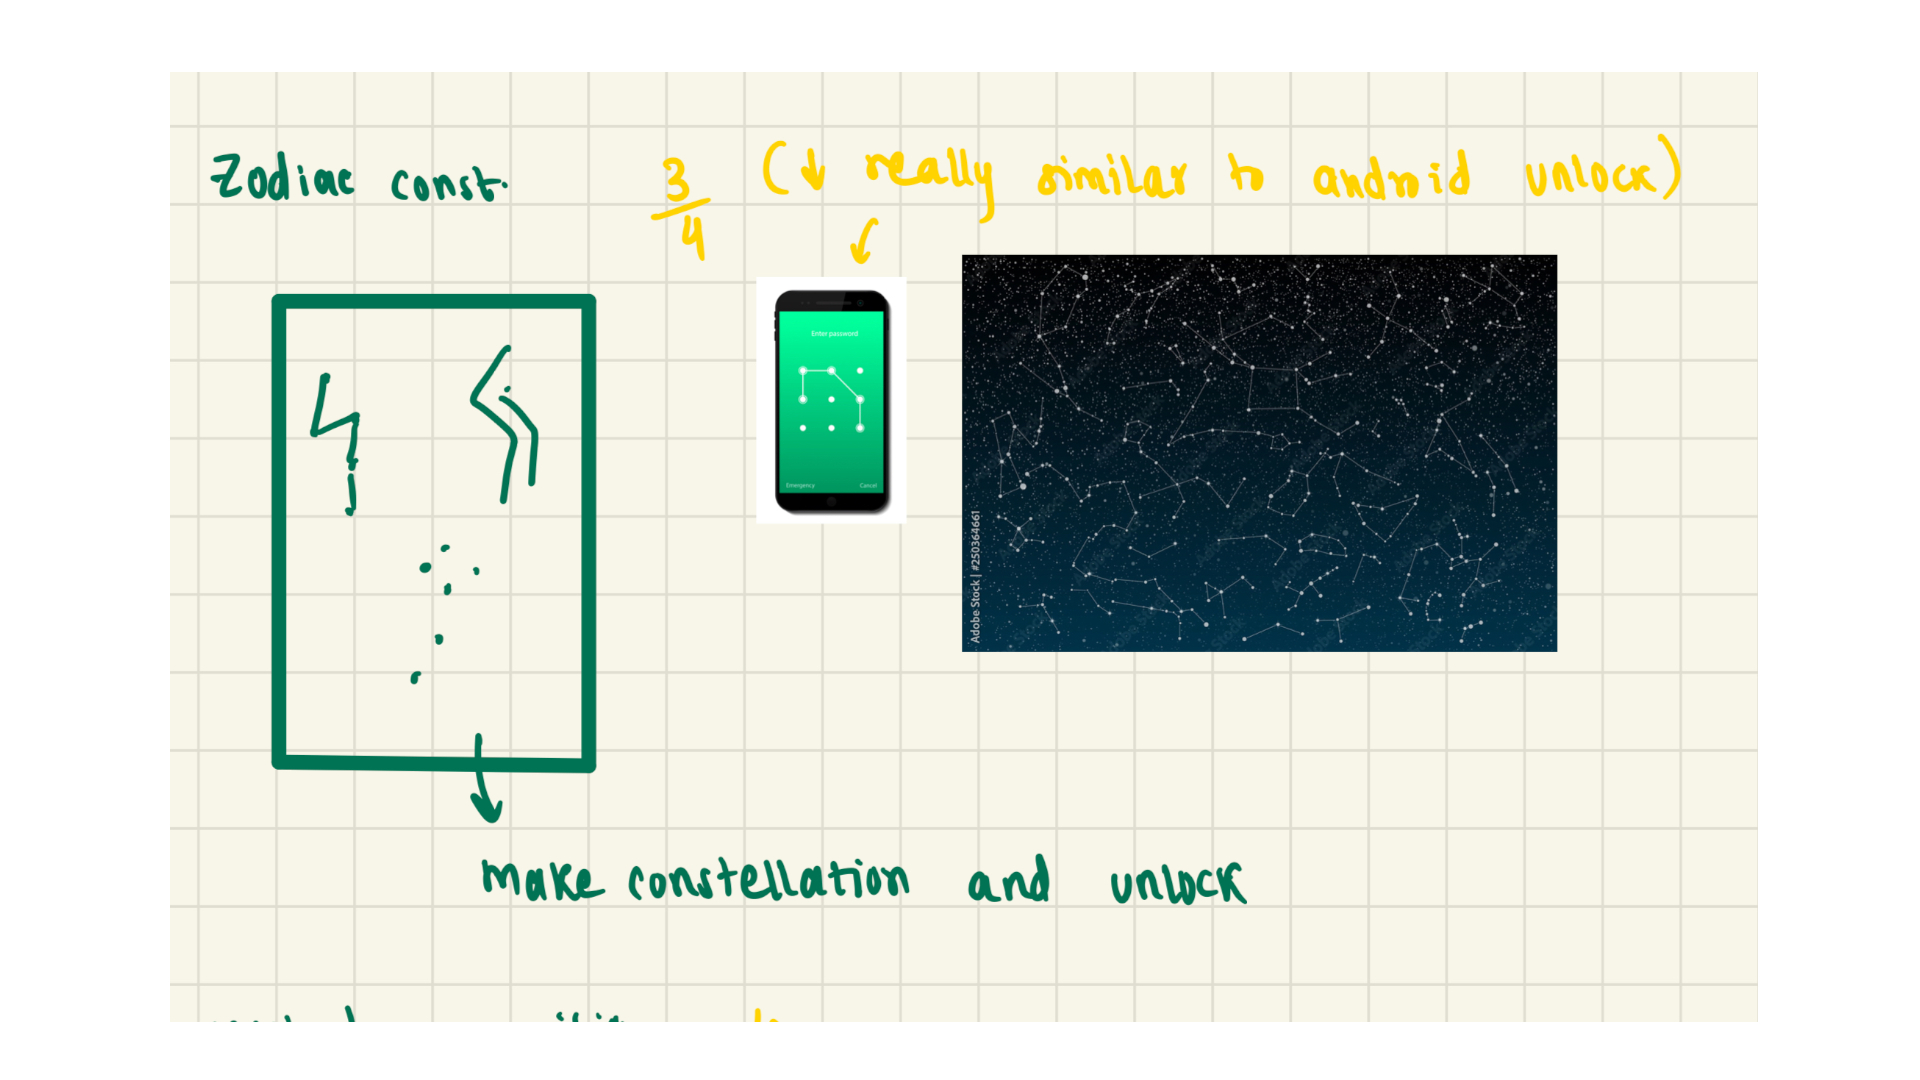 Zodiac const.
3/4 (↓ really similar to android unlock)
Enter password
Emergency Cancel
Adobe Stock | #250364661
make constellation and unlock